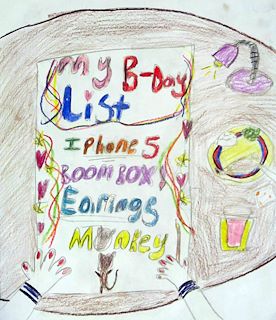 My B-Day
List
IPhone 5
BOOMBOX
Earings
Monkey